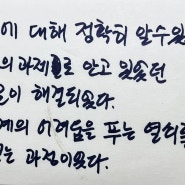 에 대해 정확히 알수있
의 과제로 안고 있었던
이 해결되었다.
계의 어려움을 푸는 열쇠를
는 과정이었다.